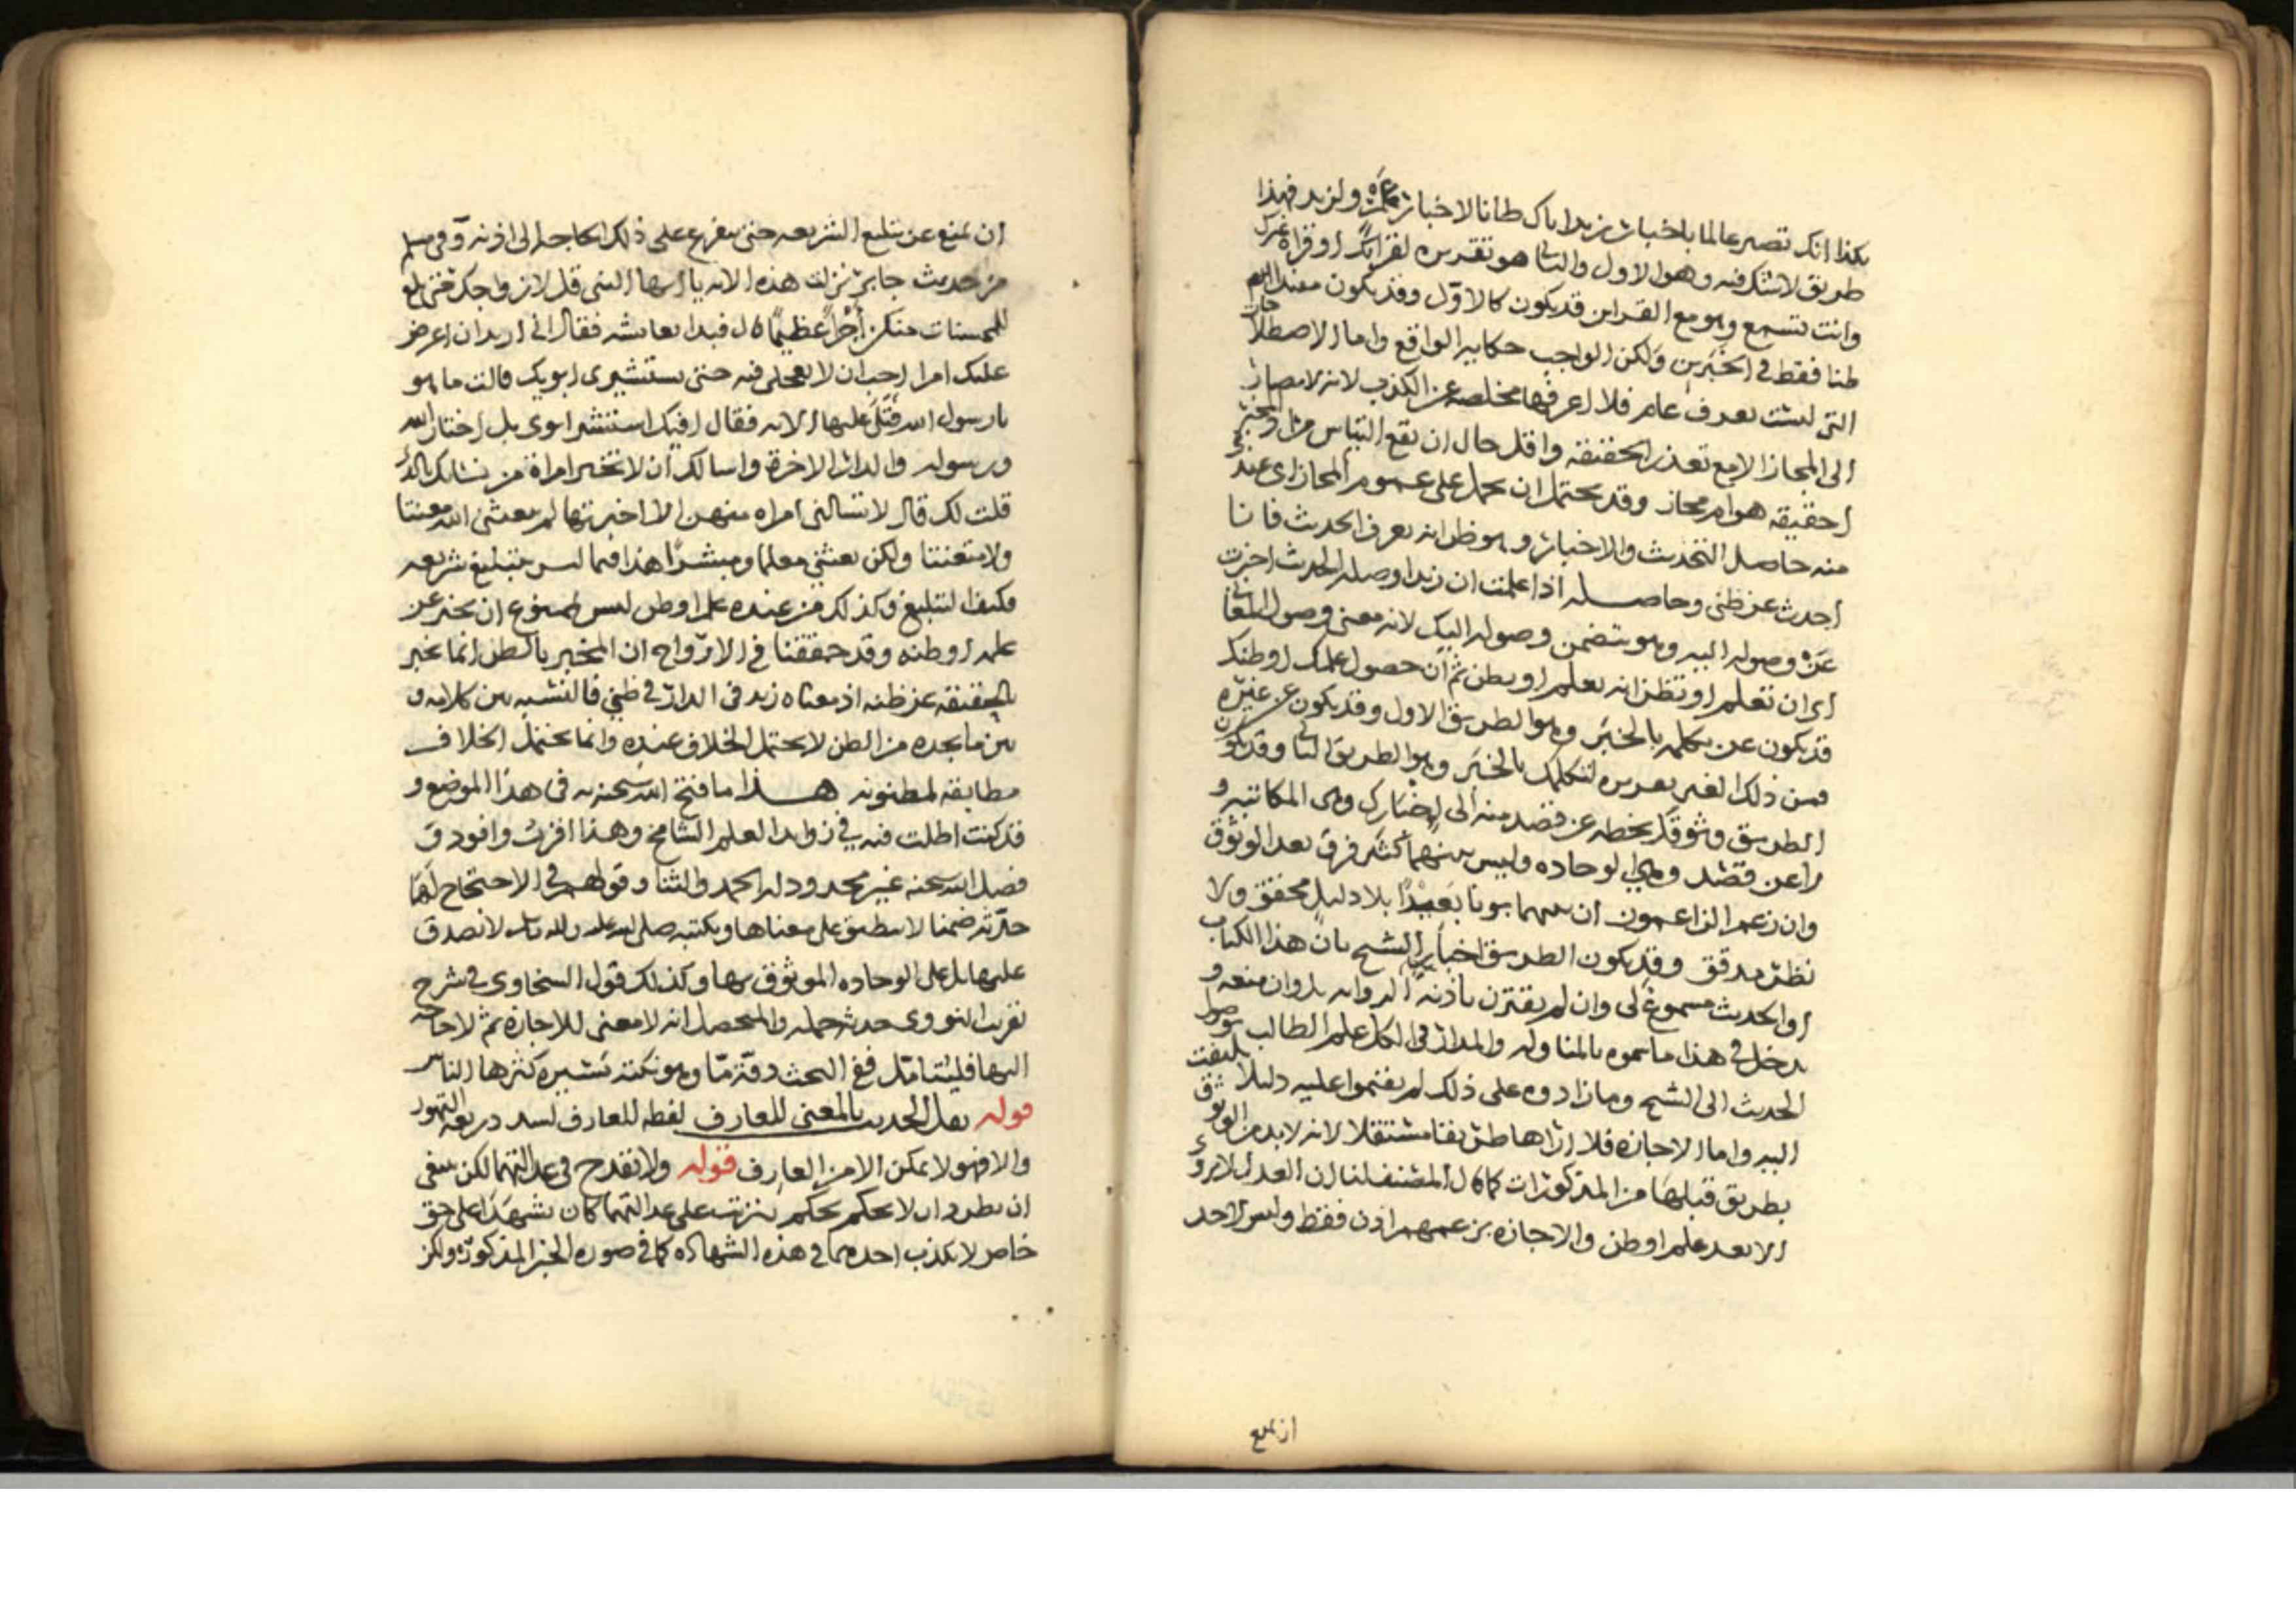 بكذا انك تصير عالما باخبار زيد اياك ظانا لاخبار عمرو لزيد فهذا
طريق لا شك فيه وهو الاول والثاني هو تقريره لقراءتك او قراءة غيرك
وانت تسمع وهو مع القراين قد يكون كالاول وقد يكون مفيدا
ظنا فقط في الخبرين ولكن الواجب حكايه الواقع واما الاصطلاحات
التي ليست بعرف عام فلا اعرفها مخلصه عن الكذب لانه لا يصار
الى المجاز الا مع تعذر الحقيقه واقل حال ان يقع التباس من المخبر
احقيقه هو ام مجاز وقد يحتمل ان يحمل على عموم المجاز اي عندي
منه حاصل التحديث والاخبار وهو ظن انه يعرف الحديث فانا
احدث عن ظني وحاصله اذا علمت ان زيدا وصله الحديث اخبرت
عن وصوله اليه وهو يتضمن وصوله اليك لانه معنى وصول المعاني
اي ان تعلم او تظن انه يعلم او يظن ثم ان حصول علمك او ظنك
قد يكون عن تكلمه بالخبر وهو الطريق الاول وقد يكون عن غيره
فمن ذلك الغير تقريره لتكلمك بالخبر وهو الطريق الثاني وقد يكون
الطريق وثوقك بخطه عن قصد منه الى اخبارك وهي المكاتبه و
لا عن قصد وهي الوجاده وليس بينهما كثير فرق بعد الوثوق
وان زعم الزاعمون ان بينهما بونا بعيدا بلا دليل محقق ولا
نظر مدقق وقد يكون الطريق اخبار الشيخ بان هذا الكتاب
او الحديث مسموع لي وان لم يقترن باذنه الروايه بل وان منعه و
يدخل في هذا ما سموه بالمناوله والمدار في الكل علم الطالب بوصول
الحديث الى الشيخ وما زادوه على ذلك لم يقيموا عليه دليلا يلتفت
اليه واما الاجازه فلا اراها طريقا مستقلا لانه لا بد من الوثوق
بطريق قبلها من المذكورات كما قال المصنف لنا ان العدل لا يروي
الا بعد علم او ظن والاجازه بزعمهم اذن فقط وليس لاحد
ان يمنع
ان يمنع عن تبليغ الشريعه حتى يتفرع على ذلك الحاجه الى اذنه وفي مسلم
من حديث جابر نزلت هذه الايه يا ايها النبي قل لازواجك حتى بلغ
للمحسنات منكن اجرا عظيما قال فبدا بعايشه فقال اني اريد ان اعرض
عليك امرا احب ان لا تعجلي فيه حتى تستشيري ابويك قالت ما هو
يا رسول الله فتلى عليها الايه فقال افيك استشير ابوي بل اختار الله
ورسوله والدار الاخرة واسالك ان لا تخبر امراة من نسائك بالذي
قلت لك قال لا تسالني امراه منهن الا اخبرتها لم يبعثني الله معنتا
ولا متعنتا ولكن بعثني معلما ومبشرا هذا فيما ليس بتبليغ شريعه
فكيف التبليغ وكذلك من عنده علم او ظن ليس لممنوع ان يخبر عن
علمه او ظنه وقد حققنا في الارواح ان المخبر بالظن انما يخبر
بالحقيقه عن ظنه اذ معناه زيد في الدار في ظني فالنسبه بين كلامه و
بين ما يجده من الظن لا يحتمل الخلاف عنده وانما يحتمل الخلاف
مطابقه لمظنونه هذا ما فتح الله سبحنه به في هذا الموضع و
قد كنت اطلت فيه في زوايد العلم الشامخ وهذا اقرب وافود و
فضل الله سبحنه غير محدود وله الحمد والثنا وقولهم في الاحتجاج لها
حدثه ضمنا لا ينطبق على معناها وبكتبه صلى الله عليه واله وسلم لا تصدق
عليها بل على الوجاده الموثوق بها وكذلك قول السخاوي في شرح
تقريب النووي حدثه جمله والمتحصل انه لا معنى للاجازه ثم لا حاجه
اليها فليتامل ففي البحث دقة ما وهو نكته تشيره كثرها الناس
قوله نقل الحديث بالمعنى للعارف لفظه للعارف لسد ذريعه التهور
والا فهو لا يمكن الا من العارف قوله ولا تقدح في عدالتهما لكن ينبغي
ان يطردوا ان لا يحكم بحكم يترتب على عدالتهما كان يشهدا على حق
خاص لا بكذب احدهما في هذه الشهاده كما في صوره الخبر المذكورة ولكن